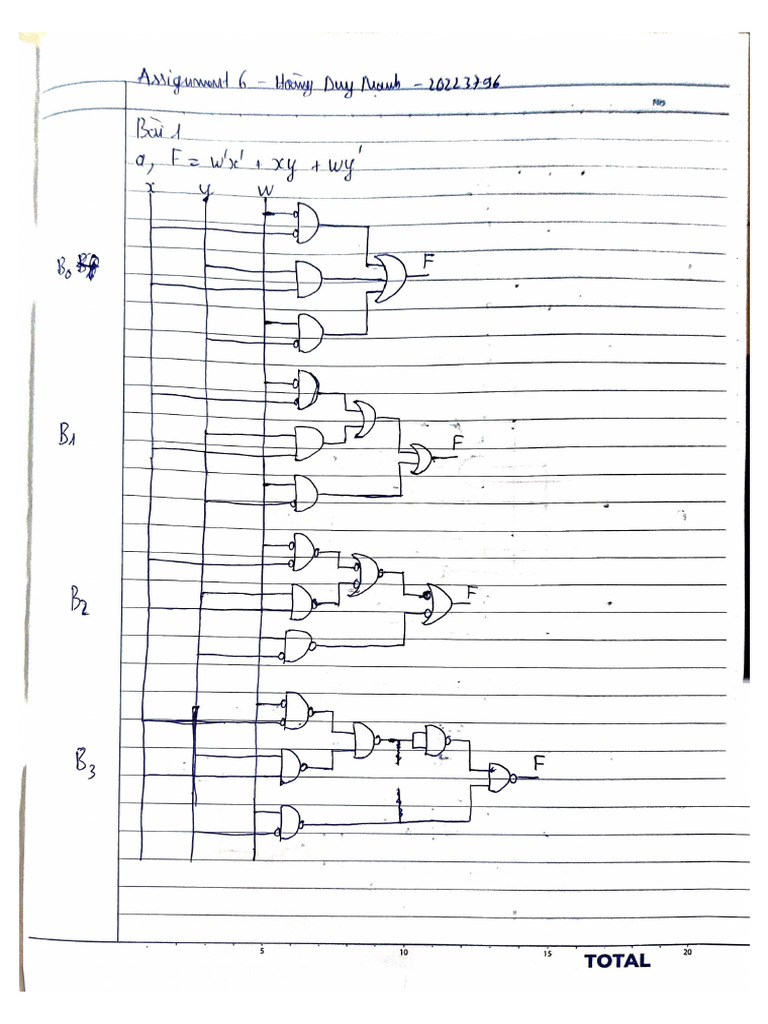 Assignment 6 - Hoàng Duy Mạnh - 20223796
No
Bài 1
a, F = w'x' + xy + wy'
x y W
B₀
F
B₁
F
B₂
F
B₃
F
5 10 15 20
TOTAL